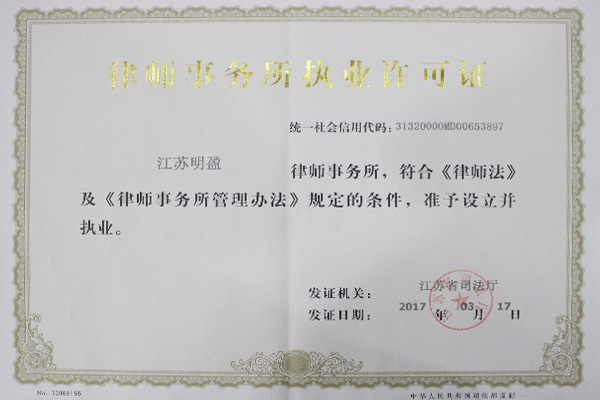 律师事务所执业许可证
统一社会信用代码：31320000MD00653897
江苏明盈 律师事务所，符合《律师法》
及《律师事务所管理办法》规定的条件，准予设立并
执业。
发证机关： 江苏省司法厅
发证日期： 2017 年 03 月 17 日
No. 72068155
中华人民共和国司法部监制